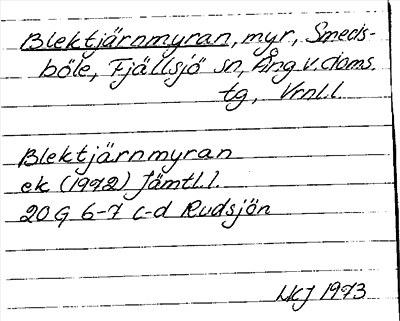 Blektjärnmyran, myr, Smeds-
böle, Fjällsjö sn, Ång.v.doms.
tg, Vrnl.l.
Blektjärnmyran
ek (1972) Jämtl.l.
20 G 6-7 c-d Rudsjön
1973